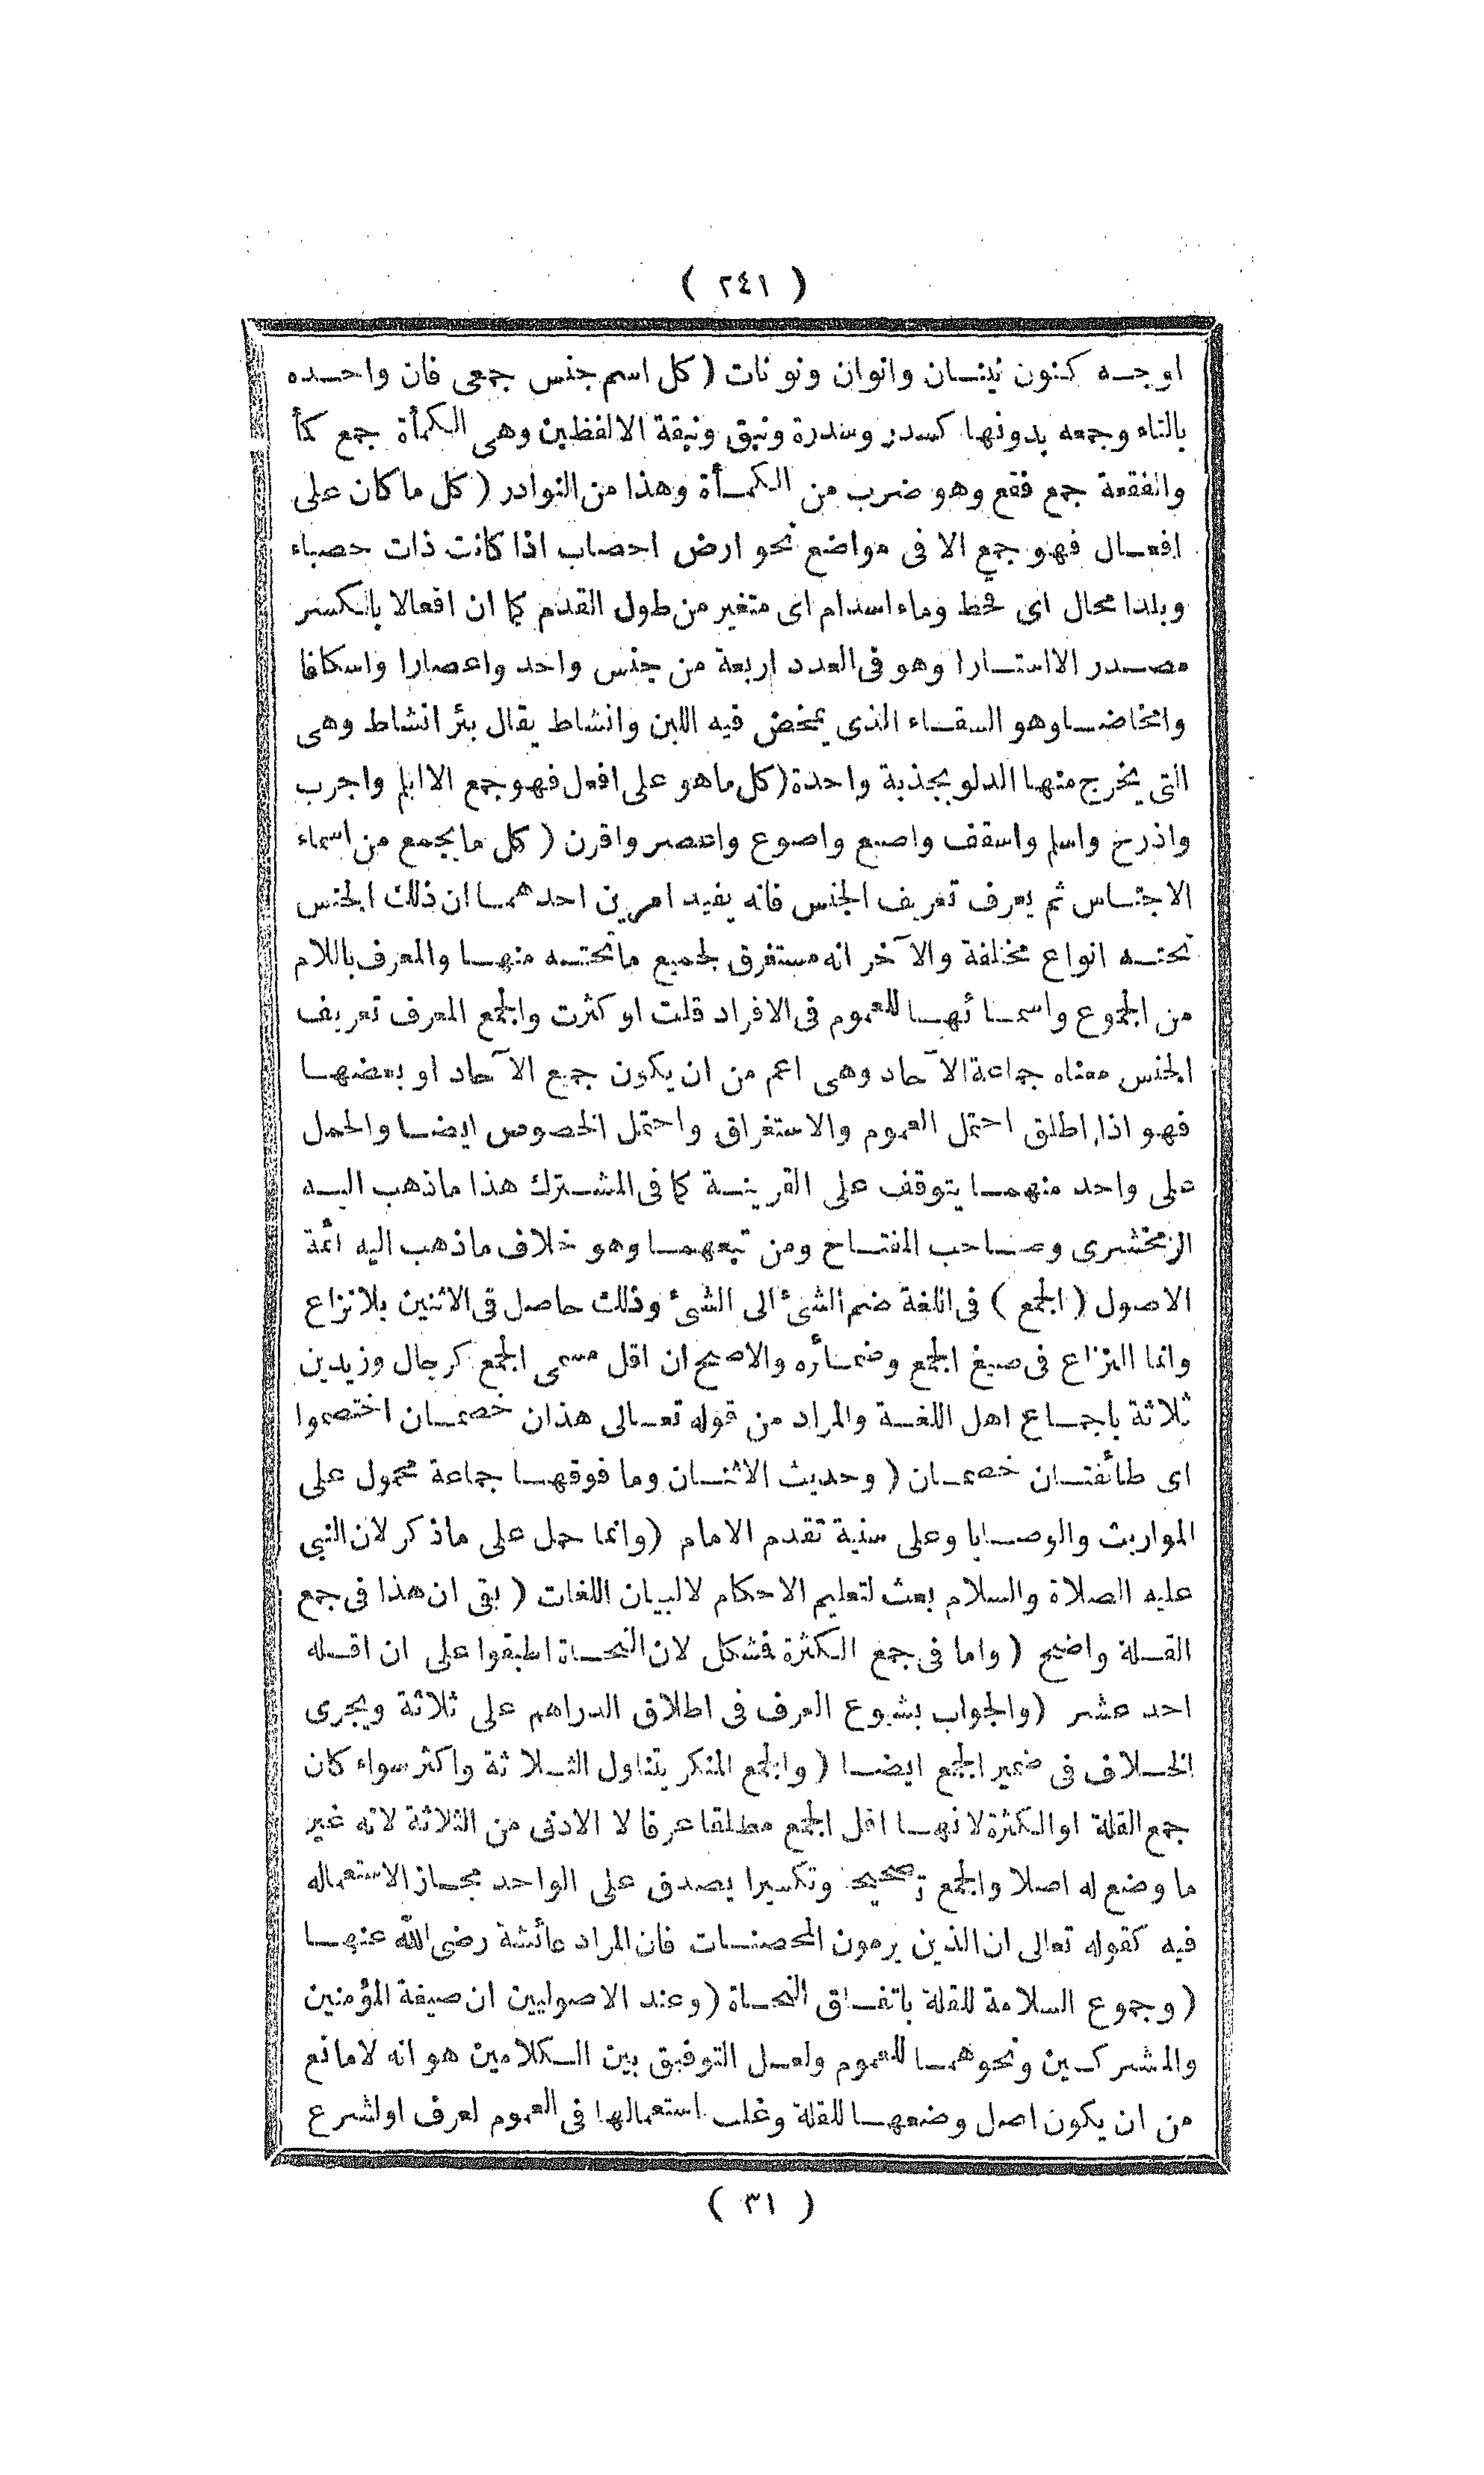 ( ٢٤١ )
اوجه كنون نينان وانوان ونونات ( كل اسم جنس جمعى فان واحده
بالتاء وجمعه بدونها كسدر وسدرة ونبق ونبقة الالفظين وهى الكمأة جمع كمأ
والفقعة جمع فقع وهو ضرب من الكمأة وهذا من النوادر ( كل ما كان على
افعال فهو جمع الا فى مواضع نحو ارض احصاب اذا كانت ذات حصباء
وبلد امحال اى قحط وماء اسدام اى متغير من طول القدم كما ان افعالا بالكسر
مصدر الا استارا وهو فى العدد اربعة من جنس واحد واعصارا واسكافا
وامخاضا وهو السقاء الذى يمخض فيه اللبن وانشاط يقال بئر انشاط وهى
التى يخرج منها الدلو بجذبة واحدة ( كل ما هو على افعل فهو جمع الا ابلم واجرب
واذرح واسلم واسقف واصبع واصوع واعصر واقرن ( كل ما يجمع من اسماء
الاجناس ثم يعرف تعريف الجنس فانه يفيد امرين احدهما ان ذلك الجنس
تحته انواع مختلفة والآخر انه مستغرق لجميع ما تحته منها والمعرف باللام
من الجموع واسمائها للعموم فى الافراد قلت او كثرت والجمع المعرف تعريف
الجنس معناه جماعة الآحاد وهى اعم من ان يكون جميع الآحاد او بعضها
فهو اذا اطلق احتمل العموم والاستغراق واحتمل الخصوص ايضا والحمل
على واحد منهما يتوقف على القرينة كما فى المشترك هذا ما ذهب اليه
الزمخشرى وصاحب المفتاح ومن تبعهما وهو خلاف ما ذهب اليه ائمة
الاصول ( الجمع ) فى اللغة ضم الشئ الى الشئ وذلك حاصل فى الاثنين بلا نزاع
وانما النزاع فى صيغ الجمع وضمائره والاصح ان اقل مسمى الجمع كرجال وزيدين
ثلاثة باجماع اهل اللغة والمراد من قوله تعالى هذان خصمان اختصموا
اى طائفتان خصمان ( وحديث الاثنان وما فوقهما جماعة محمول على
المواريث والوصايا وعلى سنية تقدم الامام ( وانما حمل على ما ذكر لان النبى
عليه الصلاة والسلام بعث لتعليم الاحكام لا لبيان اللغات ( بقى ان هذا فى جمع
القلة واضح ( واما فى جمع الكثرة فشكل لان النحاة اطبقوا على ان اقله
احد عشر ( والجواب بشيوع العرف فى اطلاق الدراهم على ثلاثة ويجرى
الخلاف فى ضمير الجمع ايضا ( والجمع المنكر يتناول الثلاثة واكثر سواء كان
جمع القلة او الكثرة لانها اقل الجمع مطلقا عرفا لا الادنى من الثلاثة لانه غير
ما وضع له اصلا والجمع تصحيحا وتكسيرا يصدق على الواحد مجازا لاستعماله
فيه كقوله تعالى ان الذين يرمون المحصنات فان المراد عائشة رضى الله عنها
( وجموع السلامة للقلة باتفاق النحاة ( وعند الاصوليين ان صيغة المؤمنين
والمشركين ونحوهما للعموم ولعل التوفيق بين الكلامين هو انه لا مانع
من ان يكون اصل وضعها للقلة وغلب استعمالها فى العموم لعرف او لشرع
( ٣١ )